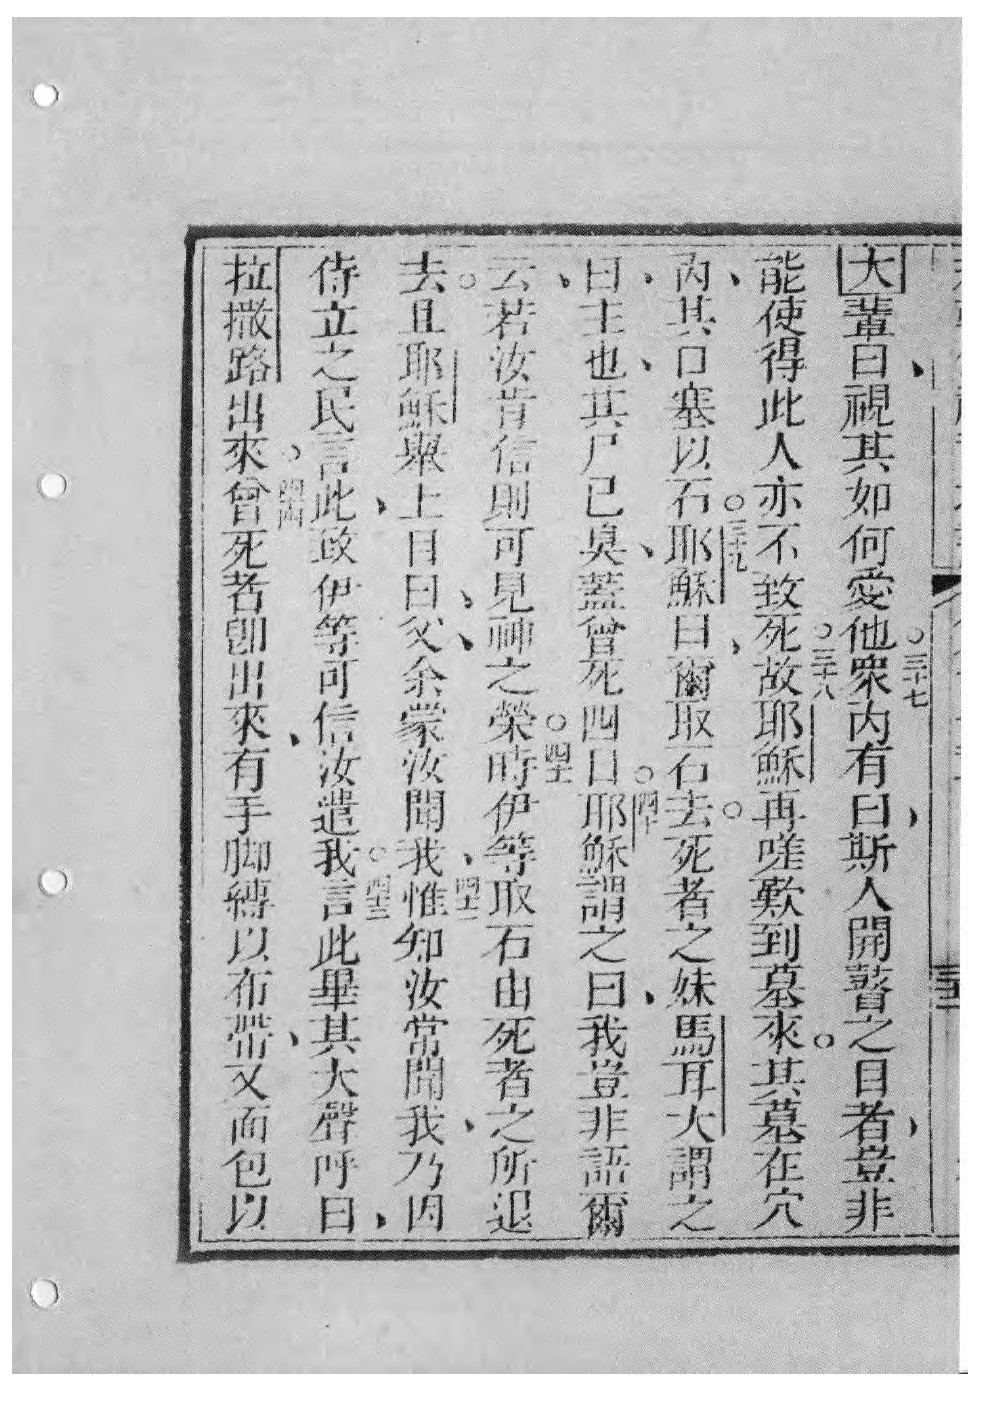 大輩曰視其如何愛他○三十七衆内有曰斯人開瞽之目者豈非
能使得此人亦不致死○三十八故耶穌再嗟歎到墓來○其墓在穴
内其口塞以石○三十九耶穌曰爾取石去○死者之妹馬耳大謂之
曰主也其尸已臭蓋曾死四日○四十耶穌謂之曰我豈非語爾
云若汝肯信則可見神之榮○四十一時伊等取石由死者之所退
去○且耶穌舉上目曰父余蒙汝聞我四十二惟知汝常聞我乃因
侍立之民言此致伊等可信汝遣我○四十三言此畢其大聲呼曰
拉撒路出來○四十四曾死者卽出來有手脚縛以布帶又面包以